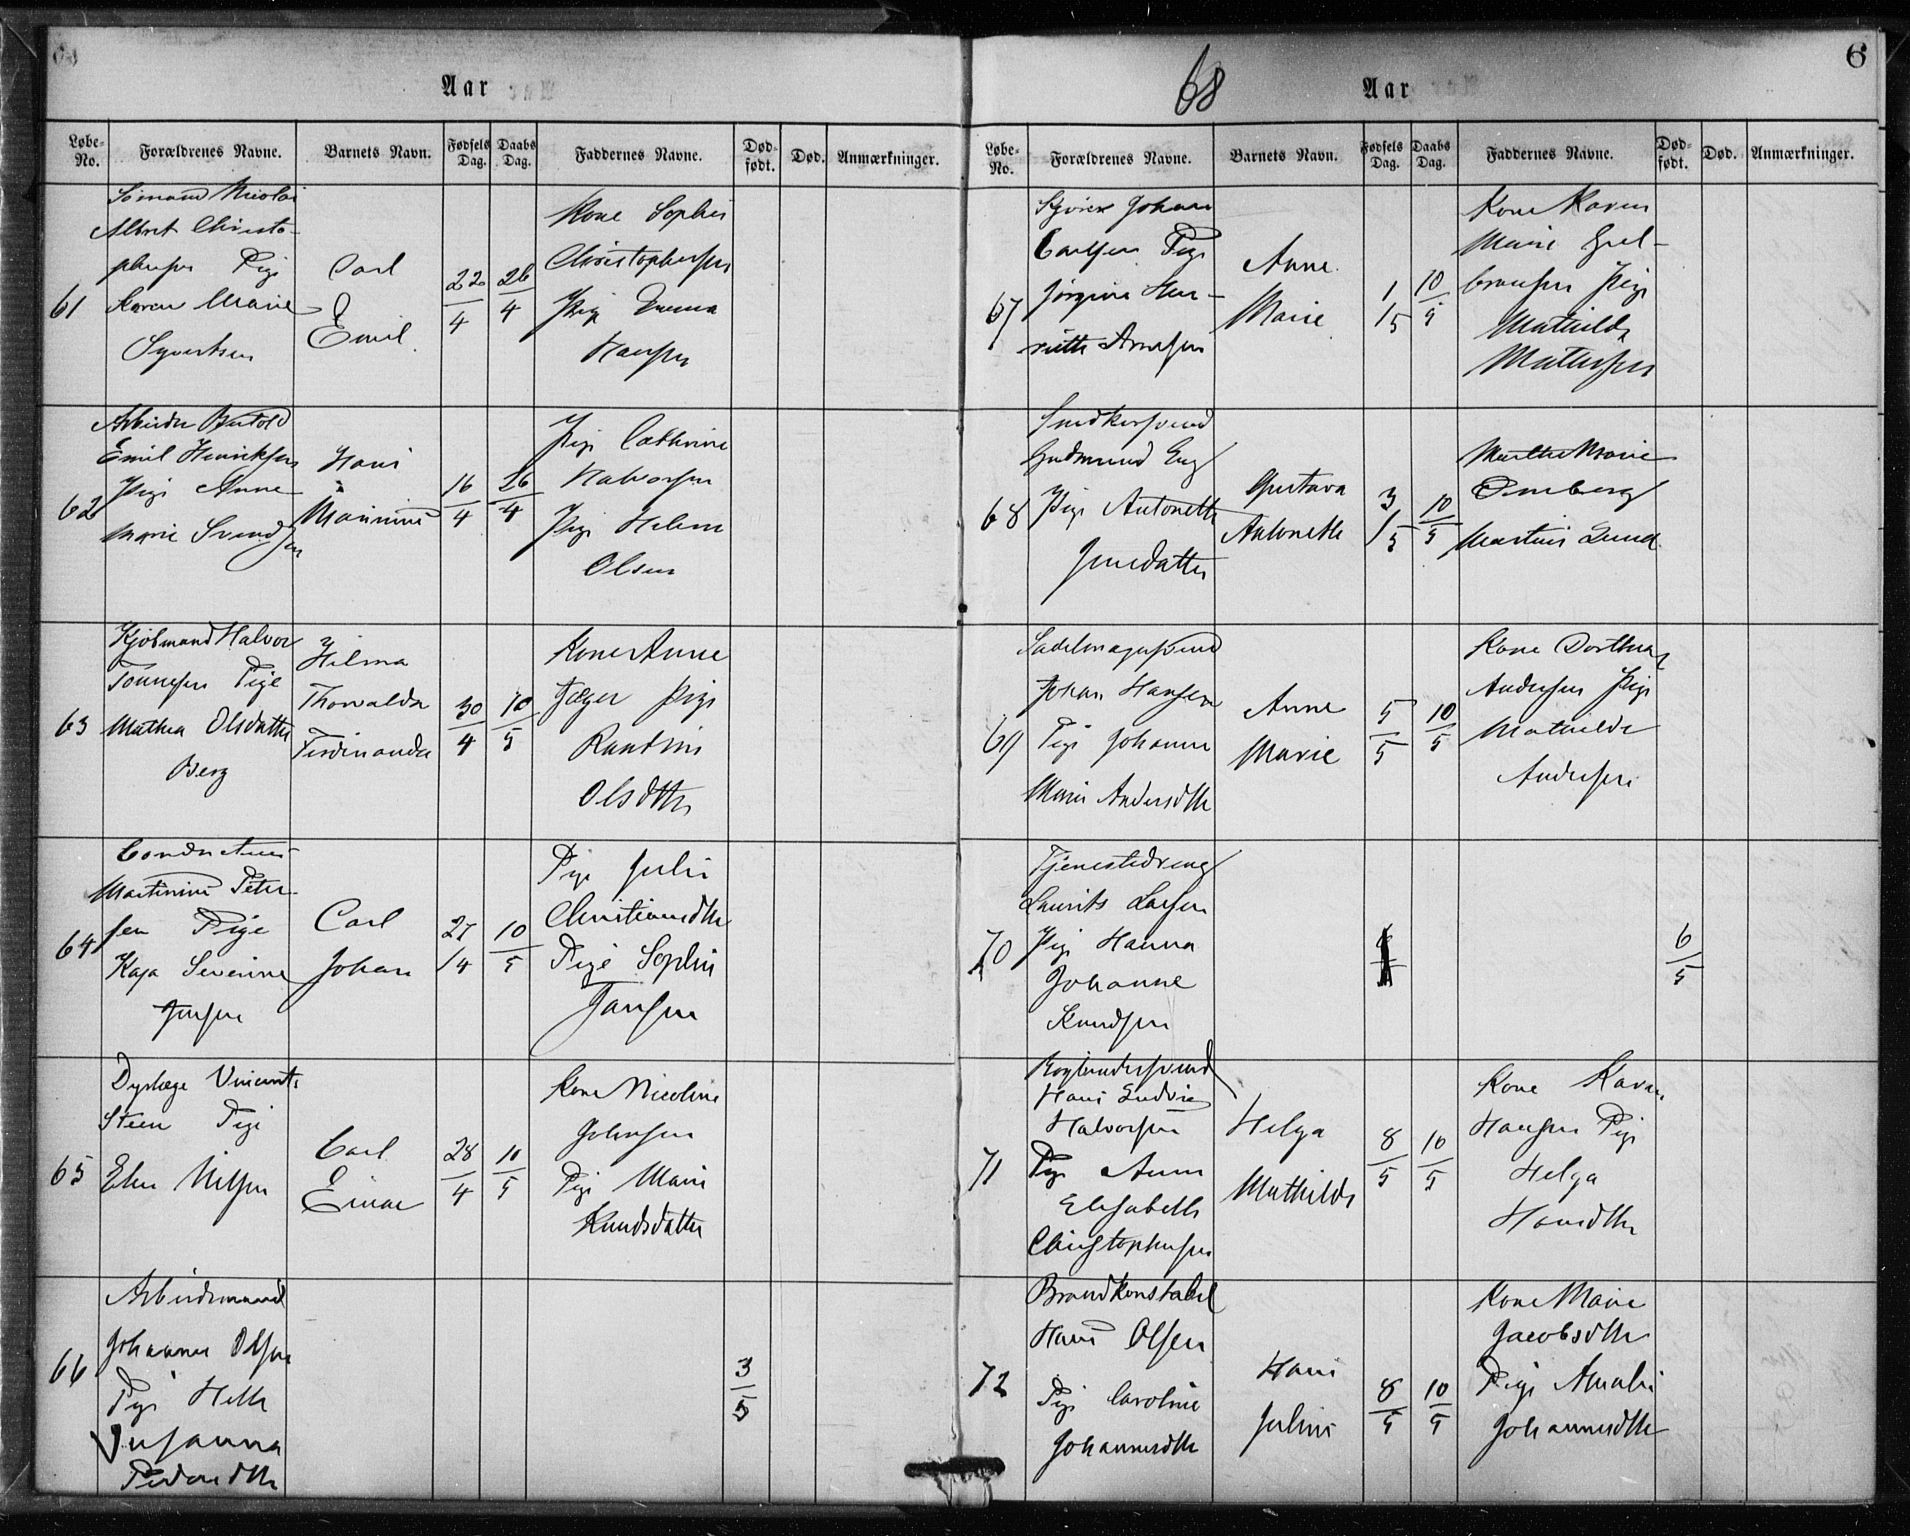 Aar
68
Aar
6
Løbe-No.
Forældrenes Navne.
Barnets Navn.
Fødsels Dag.
Daabs Dag.
Faddernes Navne.
Død-født.
Død.
Anmærkninger.
61
Sømand Nicolai
Albret Christo-
phersen Pige
Karen Marie
Syvertsen
Carl
Emil
22/4
26/4
Kone Sophie
Christophersen
Pige Emma
Hansen
62
Arbeider Bertold
Emil Henriksen
Pige Anne
Marie Svendsen
Hans
Marinius
16/4
26/4
Pige Cathrine
Halvorsen
Pige Helene
Olsen
63
Kjøbmand Halvor
Tønnesen Pige
Mathea Olsdatter
Berg
Hilma
Thorvalda
Ferdinanda
30/4
10/5
Kone Anne
Jæger Pige
Randine
Olsdtter
64
Conducteur
Martinius Peter-
sen Pige
Kaja Severine
Jensen
Carl
Johan
27/4
10/5
Pige Julie
Christiansdtr
Pige Sophie
Jansen
65
Dyrlæge Vincent
Steen Pige
Elen Nilsen
Carl
Einar
28/4
10/5
Kone Nicoline
Johnsen
Pige Marie
Knudsdatter
66
Arbeidsmand
Johannes Olsen
Pige Helle
Susanna
Pedersdtr
3/5
Løbe-No.
Forældrenes Navne.
Barnets Navn.
Fødsels Dag.
Daabs Dag.
Faddernes Navne.
Død-født.
Død.
Anmærkninger.
67
Johan
Carlsen Pige
Jørgine Hen-
riette Arnesen
Anne
Marie
1/5
10/5
Kone Karen
Marie Gul-
bransen Pige
Mathilde
Mathisen
68
Snedkersvend
Gudmund Eng
Pige Antonette
Jensdatter
Gustava
Antonette
3/5
10/5
Marthe Marie
Omberg
Martin Lund
69
Sadelmagersvend
Johan Hansen
Pige Johanne
Marie Andersdtr
Anne
Marie
5/5
10/5
Kone Dorthea
Andersen Pige
Mathilde
Andersen
70
Tjenestedreng
Laurits Larsen
Pige Hanna
Johanne
Knudsen
6/5
71
Bogbindersvend
Hans Ludvig
Halvorsen
Pige Anne
Elisabeth
Christophersen
Helga
Mathilde
8/5
10/5
Kone Karen
Hansen Pige
Helga
Hansdtr
72
Brandkonstabel
Hans Olsen
Pige Caroline
Johannesdtr
Hans
Julius
8/5
10/5
Kone Marie
Jacobsdtr
Pige Amalie
Johannesdtr